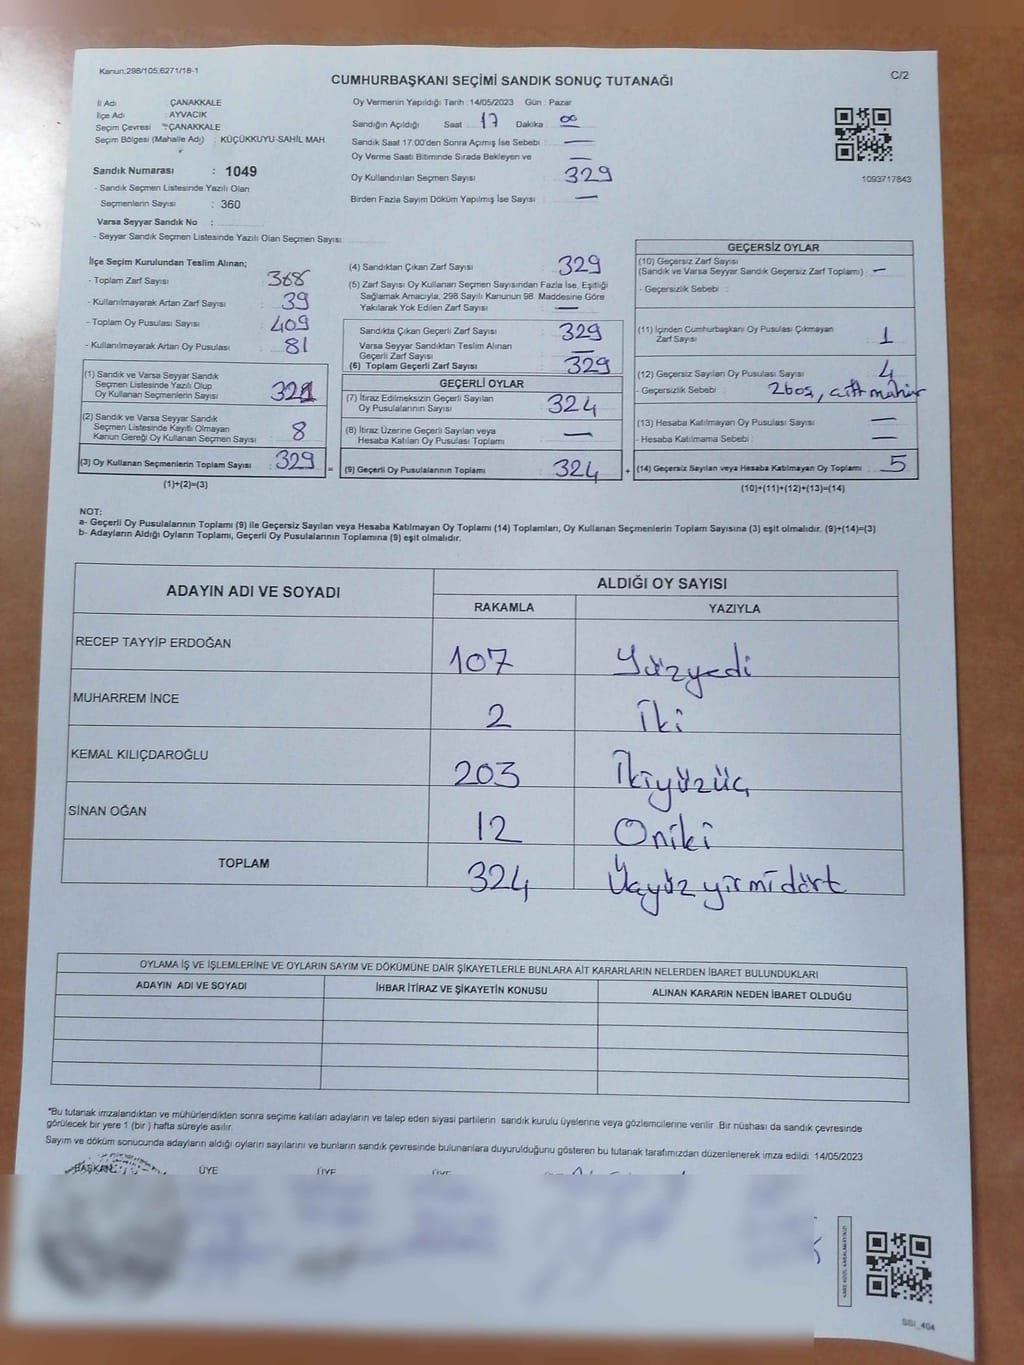 Kanun;298/105;6271/18-1
CUMHURBAŞKANI SEÇİMİ SANDIK SONUÇ TUTANAĞI
C/2
İl Adı ÇANAKKALE
İlçe Adı : AYVACIK
Seçim Çevresi : ÇANAKKALE
Seçim Bölgesi (Mahalle Adı) : KÜÇÜKKUYU-SAHİL MAH.
Sandık Numarası : 1049
- Sandık Seçmen Listesinde Yazılı Olan
Seçmenlerin Sayısı : 360
Varsa Seyyar Sandık No :
- Seyyar Sandık Seçmen Listesinde Yazılı Olan Seçmen Sayısı:
Oy Vermenin Yapıldığı Tarih : 14/05/2023 Gün : Pazar
Sandığın Açıldığı Saat : 17 Dakika : 00
Sandık Saat 17:00'den Sonra Açımış İse Sebebi : —
Oy Verme Saati Bitiminde Sırada Bekleyen ve —
Oy Kullandırılan Seçmen Sayısı 329
Birden Fazla Sayım Döküm Yapılmış İse Sayısı : —
1093717843
İlçe Seçim Kurulundan Teslim Alınan;
- Toplam Zarf Sayısı : 368
- Kullanılmayarak Artan Zarf Sayısı : 39
- Toplam Oy Pusulası Sayısı : 409
- Kullanılmayarak Artan Oy Pusulası : 81
(1) Sandık ve Varsa Seyyar Sandık
Seçmen Listesinde Yazılı Olup
Oy Kullanan Seçmenlerin Sayısı 321
(2) Sandık ve Varsa Seyyar Sandık
Seçmen Listesinde Kayıtlı Olmayan
Kanun Gereği Oy Kullanan Seçmen Sayısı 8
(3) Oy Kullanan Seçmenlerin Toplam Sayısı 329
(1)+(2)=(3)
=
(4) Sandıktan Çıkan Zarf Sayısı 329
(5) Zarf Sayısı Oy Kullanan Seçmen Sayısından Fazla İse, Eşitliği
Sağlamak Amacıyla, 298 Sayılı Kanunun 98. Maddesine Göre
Yakılarak Yok Edilen Zarf Sayısı : —
Sandıkta Çıkan Geçerli Zarf Sayısı 329
Varsa Seyyar Sandıktan Teslim Alınan
Geçerli Zarf Sayısı —
(6) Toplam Geçerli Zarf Sayısı 329
GEÇERLİ OYLAR
(7) İtiraz Edilmeksizin Geçerli Sayılan
Oy Pusulalarının Sayısı 324
(8) İtiraz Üzerine Geçerli Sayılan veya
Hesaba Katılan Oy Pusulası Toplamı —
(9) Geçerli Oy Pusulalarının Toplamı 324
+
GEÇERSİZ OYLAR
(10) Geçersiz Zarf Sayısı
(Sandık ve Varsa Seyyar Sandık Geçersiz Zarf Toplamı) : —
- Geçersizlik Sebebi :
(11) İçinden Cumhurbaşkanı Oy Pusulası Çıkmayan
Zarf Sayısı 1
(12) Geçersiz Sayılan Oy Pusulası Sayısı 4
- Geçersizlik Sebebi : 2boş, çift mühür
(13) Hesaba Katılmayan Oy Pusulası Sayısı —
- Hesaba Katılmama Sebebi : —
(14) Geçersiz Sayılan veya Hesaba Katılmayan Oy Toplamı : 5
(10)+(11)+(12)+(13)=(14)
NOT:
a- Geçerli Oy Pusulalarının Toplamı (9) ile Geçersiz Sayılan veya Hesaba Katılmayan Oy Toplamı (14) Toplamları, Oy Kullanan Seçmenlerin Toplam Sayısına (3) eşit olmalıdır. (9)+(14)=(3)
b- Adayların Aldığı Oyların Toplamı, Geçerli Oy Pusulalarının Toplamına (9) eşit olmalıdır.
ADAYIN ADI VE SOYADI ALDIĞI OY SAYISI
RAKAMLA YAZIYLA
RECEP TAYYİP ERDOĞAN 107 Yüzyedi
MUHARREM İNCE 2 İki
KEMAL KILIÇDAROĞLU 203 İkiyüzüç
SİNAN OĞAN 12 Oniki
TOPLAM 324 Üçyüz yirmidört
OYLAMA İŞ VE İŞLEMLERİNE VE OYLARIN SAYIM VE DÖKÜMÜNE DAİR ŞİKAYETLERLE BUNLARA AİT KARARLARIN NELERDEN İBARET BULUNDUKLARI
ADAYIN ADI VE SOYADI İHBAR İTİRAZ VE ŞİKAYETİN KONUSU ALINAN KARARIN NEDEN İBARET OLDUĞU
*Bu tutanak imzalandıktan ve mühürlendikten sonra seçime katılan adayların ve talep eden siyasi partilerin sandık kurulu üyelerine veya gözlemcilerine verilir .Bir nüshası da sandık çevresinde
görülecek bir yere 1 (bir ) hafta süreyle asılır.
Sayım ve döküm sonucunda adayların aldığı oyların sayılarını ve bunların sandık çevresinde bulunanlara duyurulduğunu gösteren bu tutanak tarafımızdan düzenlenerek imza edildi 14/05/2023
BAŞKAN ÜYE ÜYE ÜYE
SSI_404